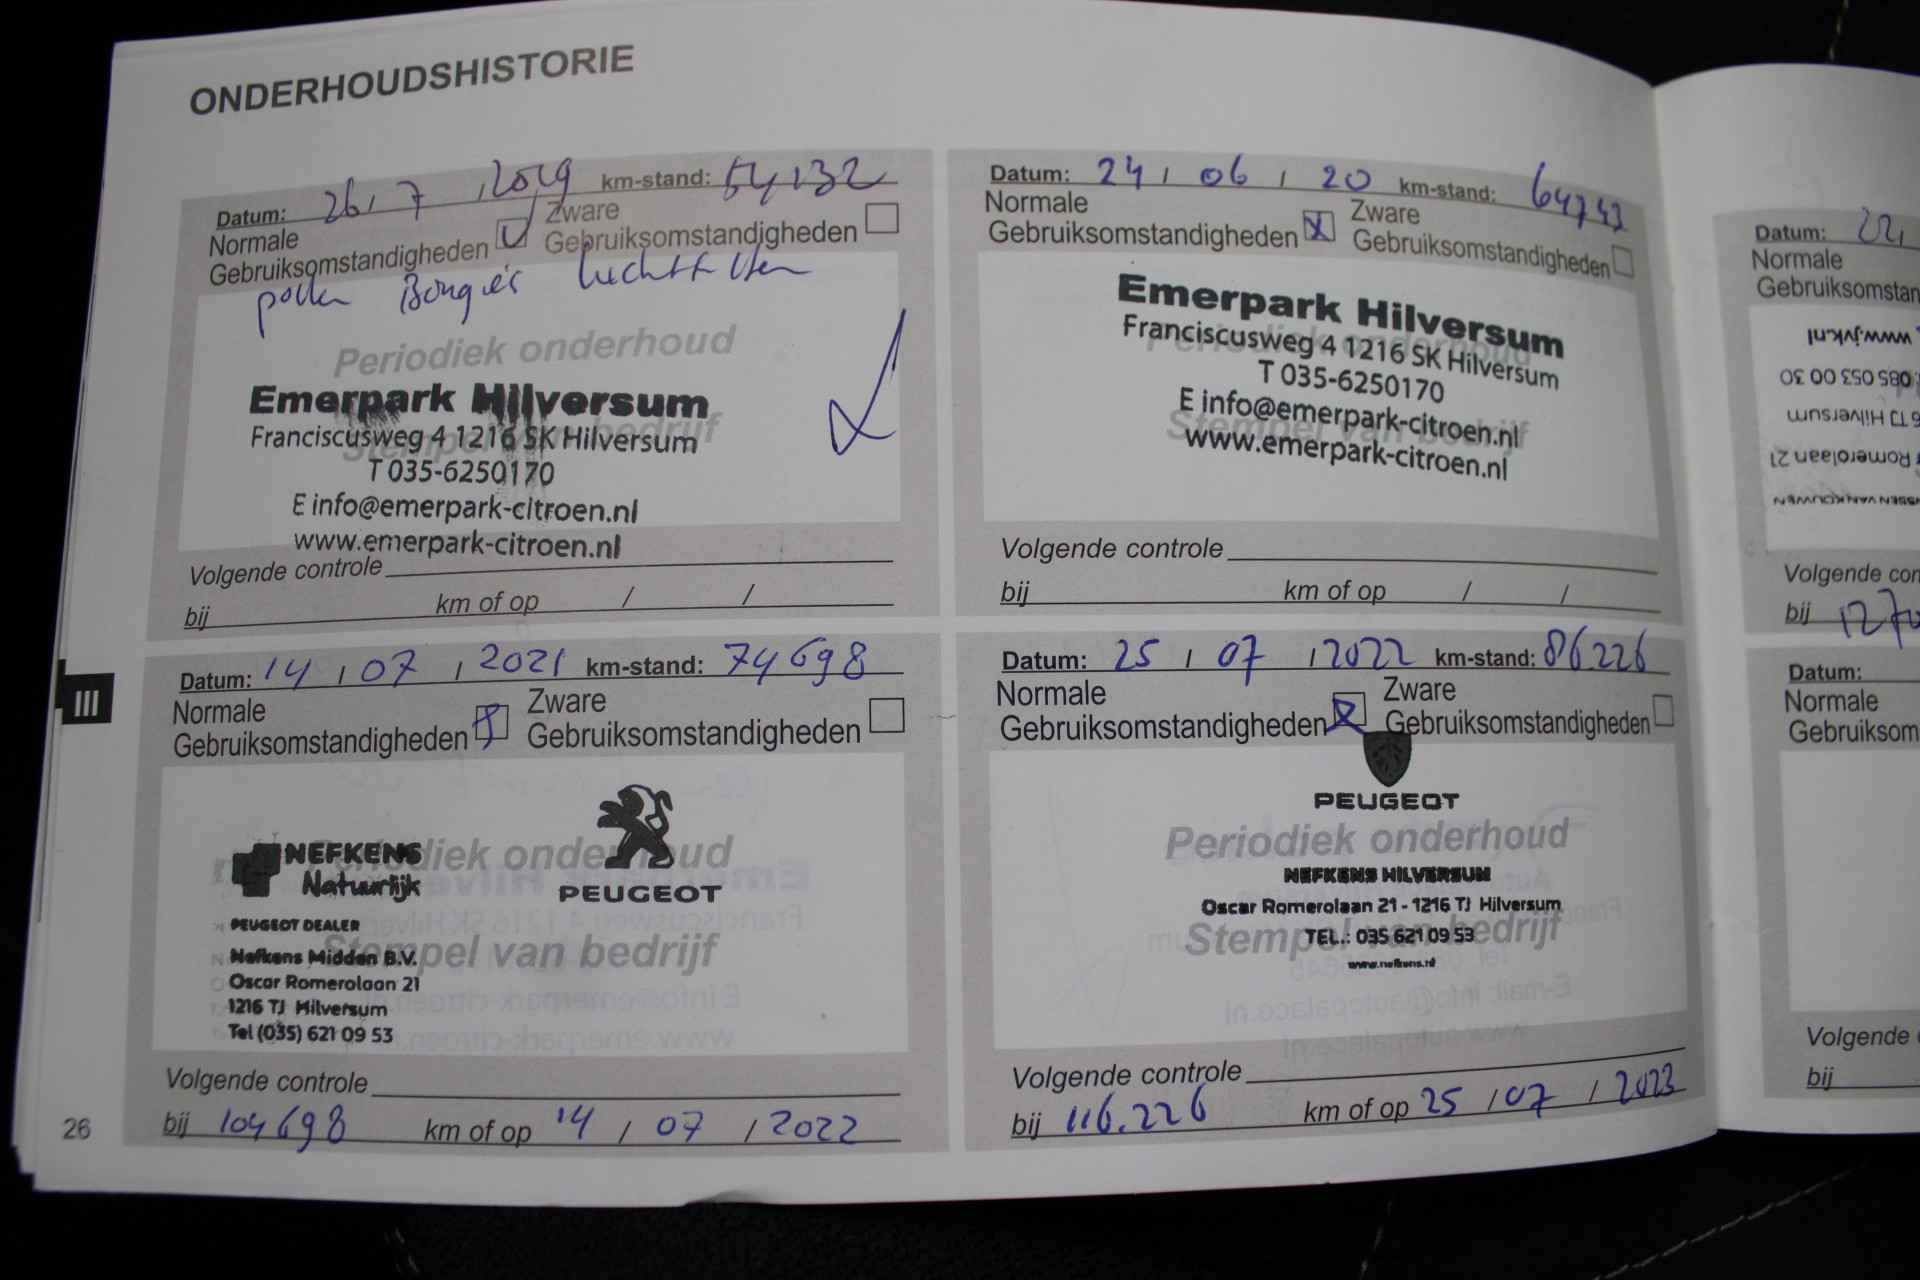 ONDERHOUDSHISTORIE
Datum: 26 / 7 / 2019 km-stand: 54132
Normale
Gebruiksomstandigheden
Zware
Gebruiksomstandigheden
pollen Bougies luchtfilter
Periodiek onderhoud
Stempel van bedrijf
Emerpark Hilversum
Franciscusweg 4 1216 SK Hilversum
T 035-6250170
E info@emerpark-citroen.nl
www.emerpark-citroen.nl
Volgende controle
bij km of op / /
Datum: 24 / 06 / 20 km-stand: 64743
Normale
Gebruiksomstandigheden X
Zware
Gebruiksomstandigheden
Emerpark Hilversum
Franciscusweg 4 1216 SK Hilversum
T 035-6250170
E info@emerpark-citroen.nl
www.emerpark-citroen.nl
Periodiek onderhoud
Stempel van bedrijf
Volgende controle
bij km of op / /
III
Datum: 14 / 07 / 2021 km-stand: 74698
Normale
Gebruiksomstandigheden
Zware
Gebruiksomstandigheden
Periodiek onderhoud
Stempel van bedrijf
NEFKENS
Natuurlijk
PEUGEOT
PEUGEOT DEALER
Nefkens Midden B.V.
Oscar Romerolaan 21
1216 TJ Hilversum
Tel (035) 621 09 53
Volgende controle
bij 104698 km of op 14 / 07 / 2022
Datum: 25 / 07 / 2022 km-stand: 86.226
Normale
Gebruiksomstandigheden
Zware
Gebruiksomstandigheden
PEUGEOT
Periodiek onderhoud
NEFKENS HILVERSUM
Oscar Romerolaan 21 - 1216 TJ Hilversum
Stempel van bedrijf
TEL.: 035 621 09 53
www.nefkens.nl
Volgende controle
bij 116.226 km of op 25 / 07 / 2023
26
Datum: 22 /
Normale
Gebruiksomstan
www.jvk.nl
085 053 00 30
6 TJ Hilversum
Romerolaan 21
NSSEN VAN KOUWEN
Volgende con
bij
Datum:
Normale
Gebruiksom
Volgende
bij